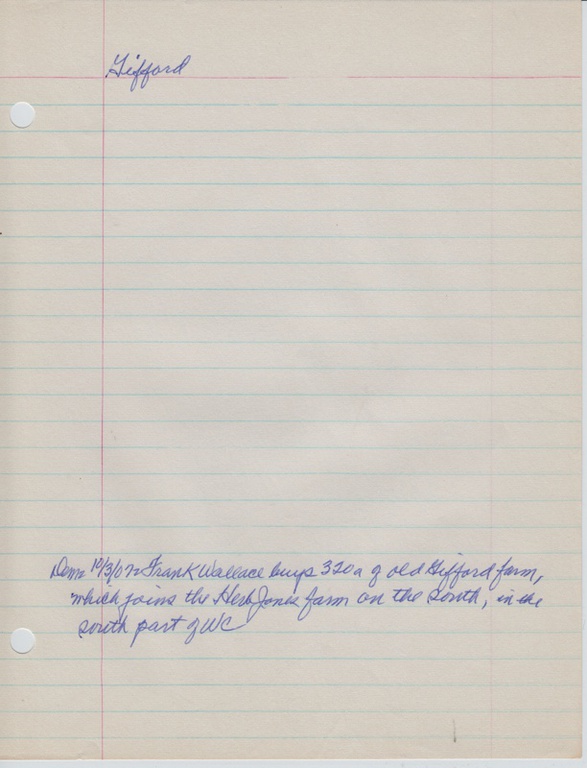 Gifford
Dem 10/3/02 Frank Wallace buys 320 a of old Gifford farm,
which joins the Herb Jones farm on the south, in the
south part of WC